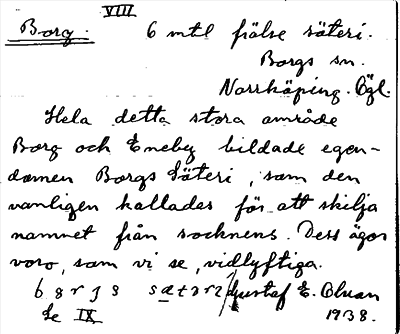 VIII
Borg. 6 mtl frälse säteri.
Borgs sn.
Norrköping. Ögl.
Hela detta stora område
Borg och Eneby bildade egen-
domen Borgs Säteri, som den
vanligen kallades för att skilja
namnet från socknens. Dess ägor
voro, som vi se, vidlyftiga.
Gustaf E. Cluan
Se IX 1938.